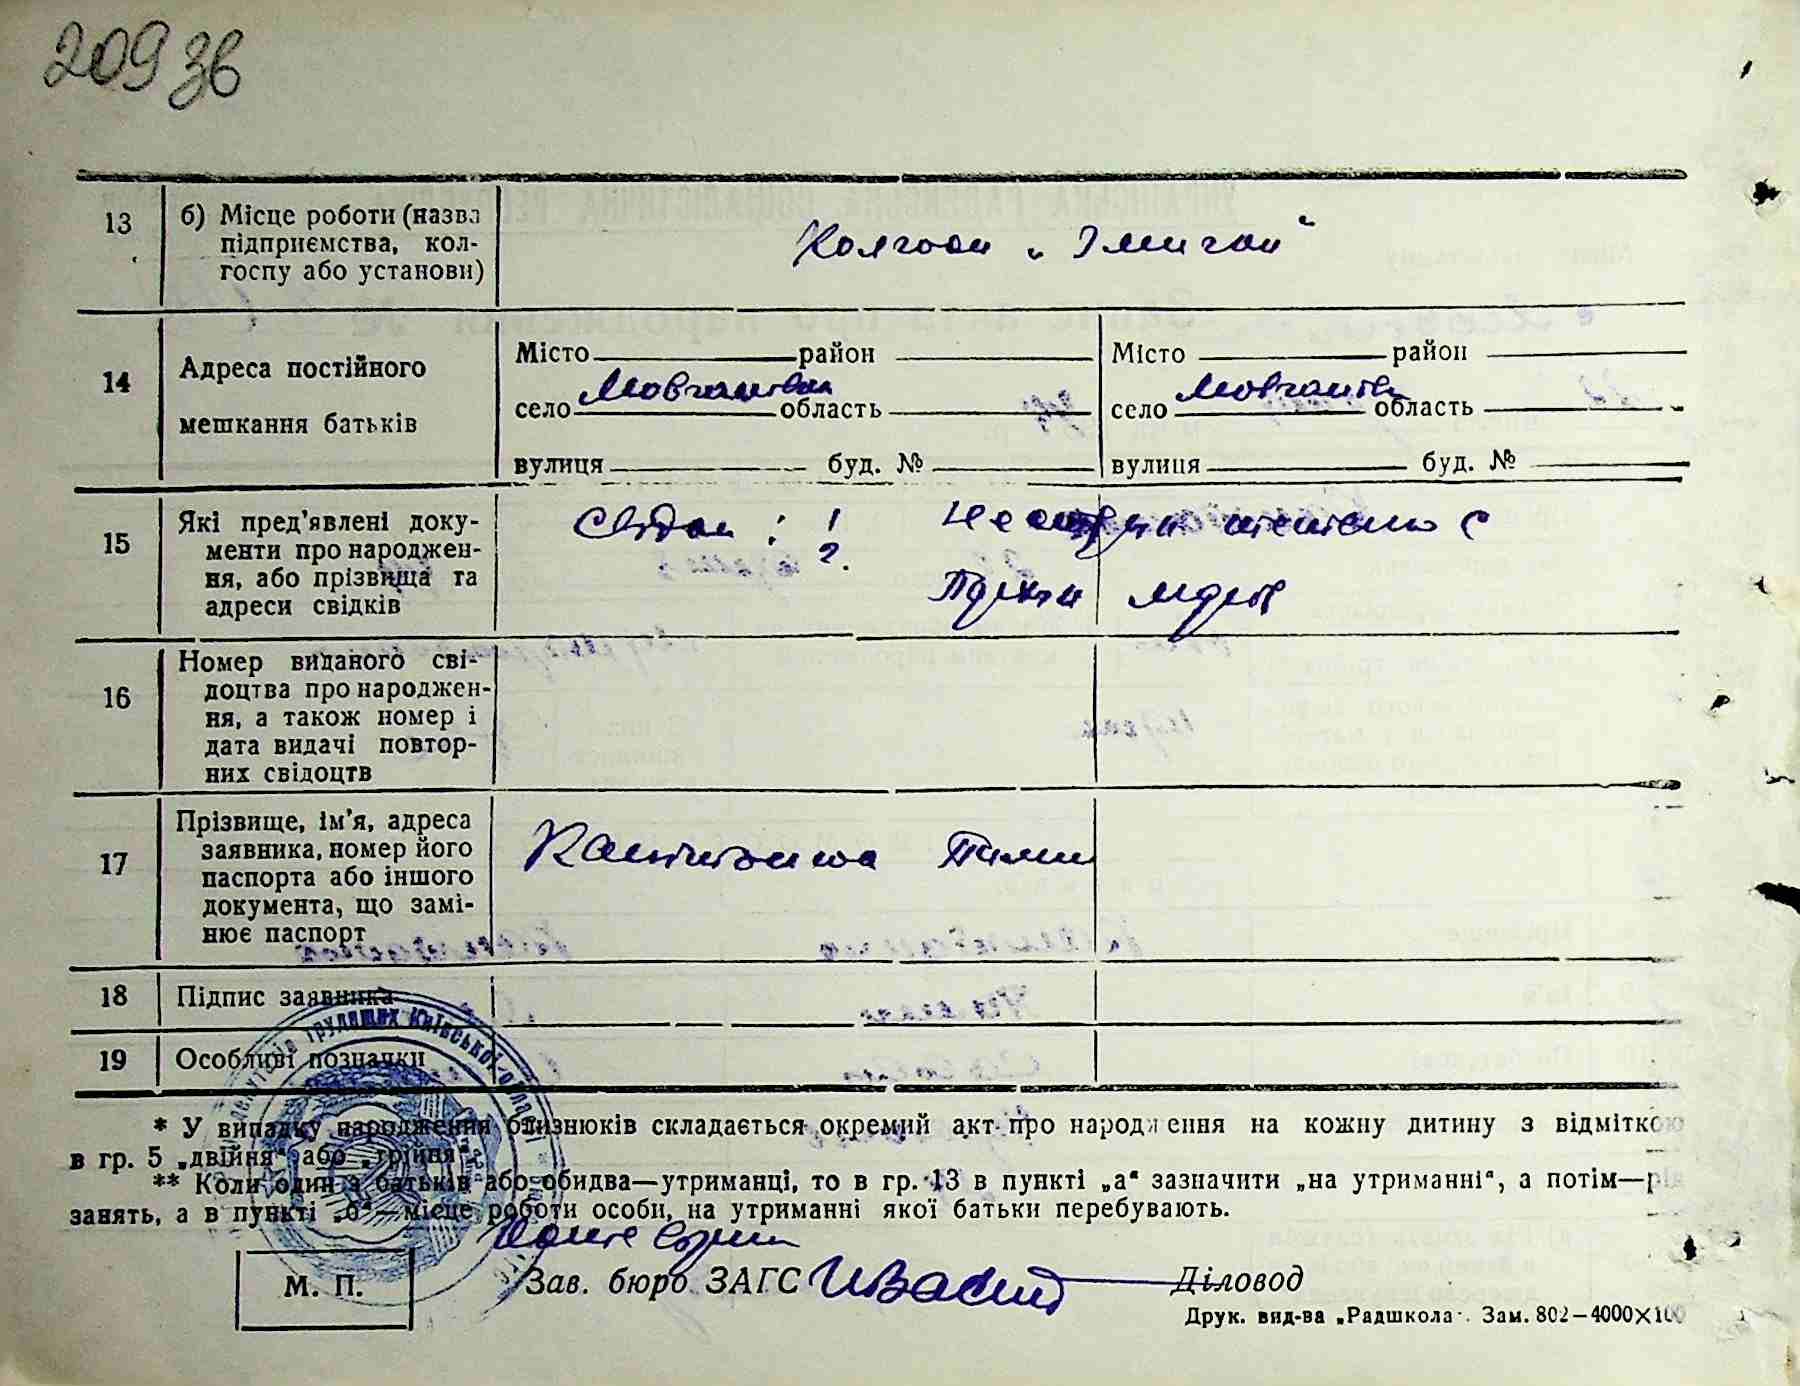 209 зв
13
б) Місце роботи (назва
підприємства, кол-
госпу або установи)
Колгосп
14
Адреса постійного
мешкання батьків
Місто район
село Мовчанівка область
вулиця буд. №
Місто район
село Мовчанівк область
вулиця буд. №
15
Які пред'явлені доку-
менти про народжен-
ня, або прізвища та
адреси свідків
Свідки : 1
2.
16
Номер виданого сві-
доцтва про народжен-
ня, а також номер і
дата видачі повтор-
них свідоцтв
17
Прізвище, ім'я, адреса
заявника, номер його
паспорта або іншого
документа, що замі-
нює паспорт
18
Підпис заявника
19
Особливі позначки
трудящих Київської області
* У випадку народження близнюків складається окремий акт про народження на кожну дитину з відміткою
в гр. 5 „двійня" або „трійня".
** Коли один з батьків або обидва—утриманці, то в гр. 13 в пункті „а" зазначити „на утриманні", а потім—рід
занять, а в пункті „б"—місце роботи особи, на утриманні якої батьки перебувають.
М. П.
Зав. бюро ЗАГС
Діловод
Друк. вид-ва „Радшкола". Зам. 802—4000×100